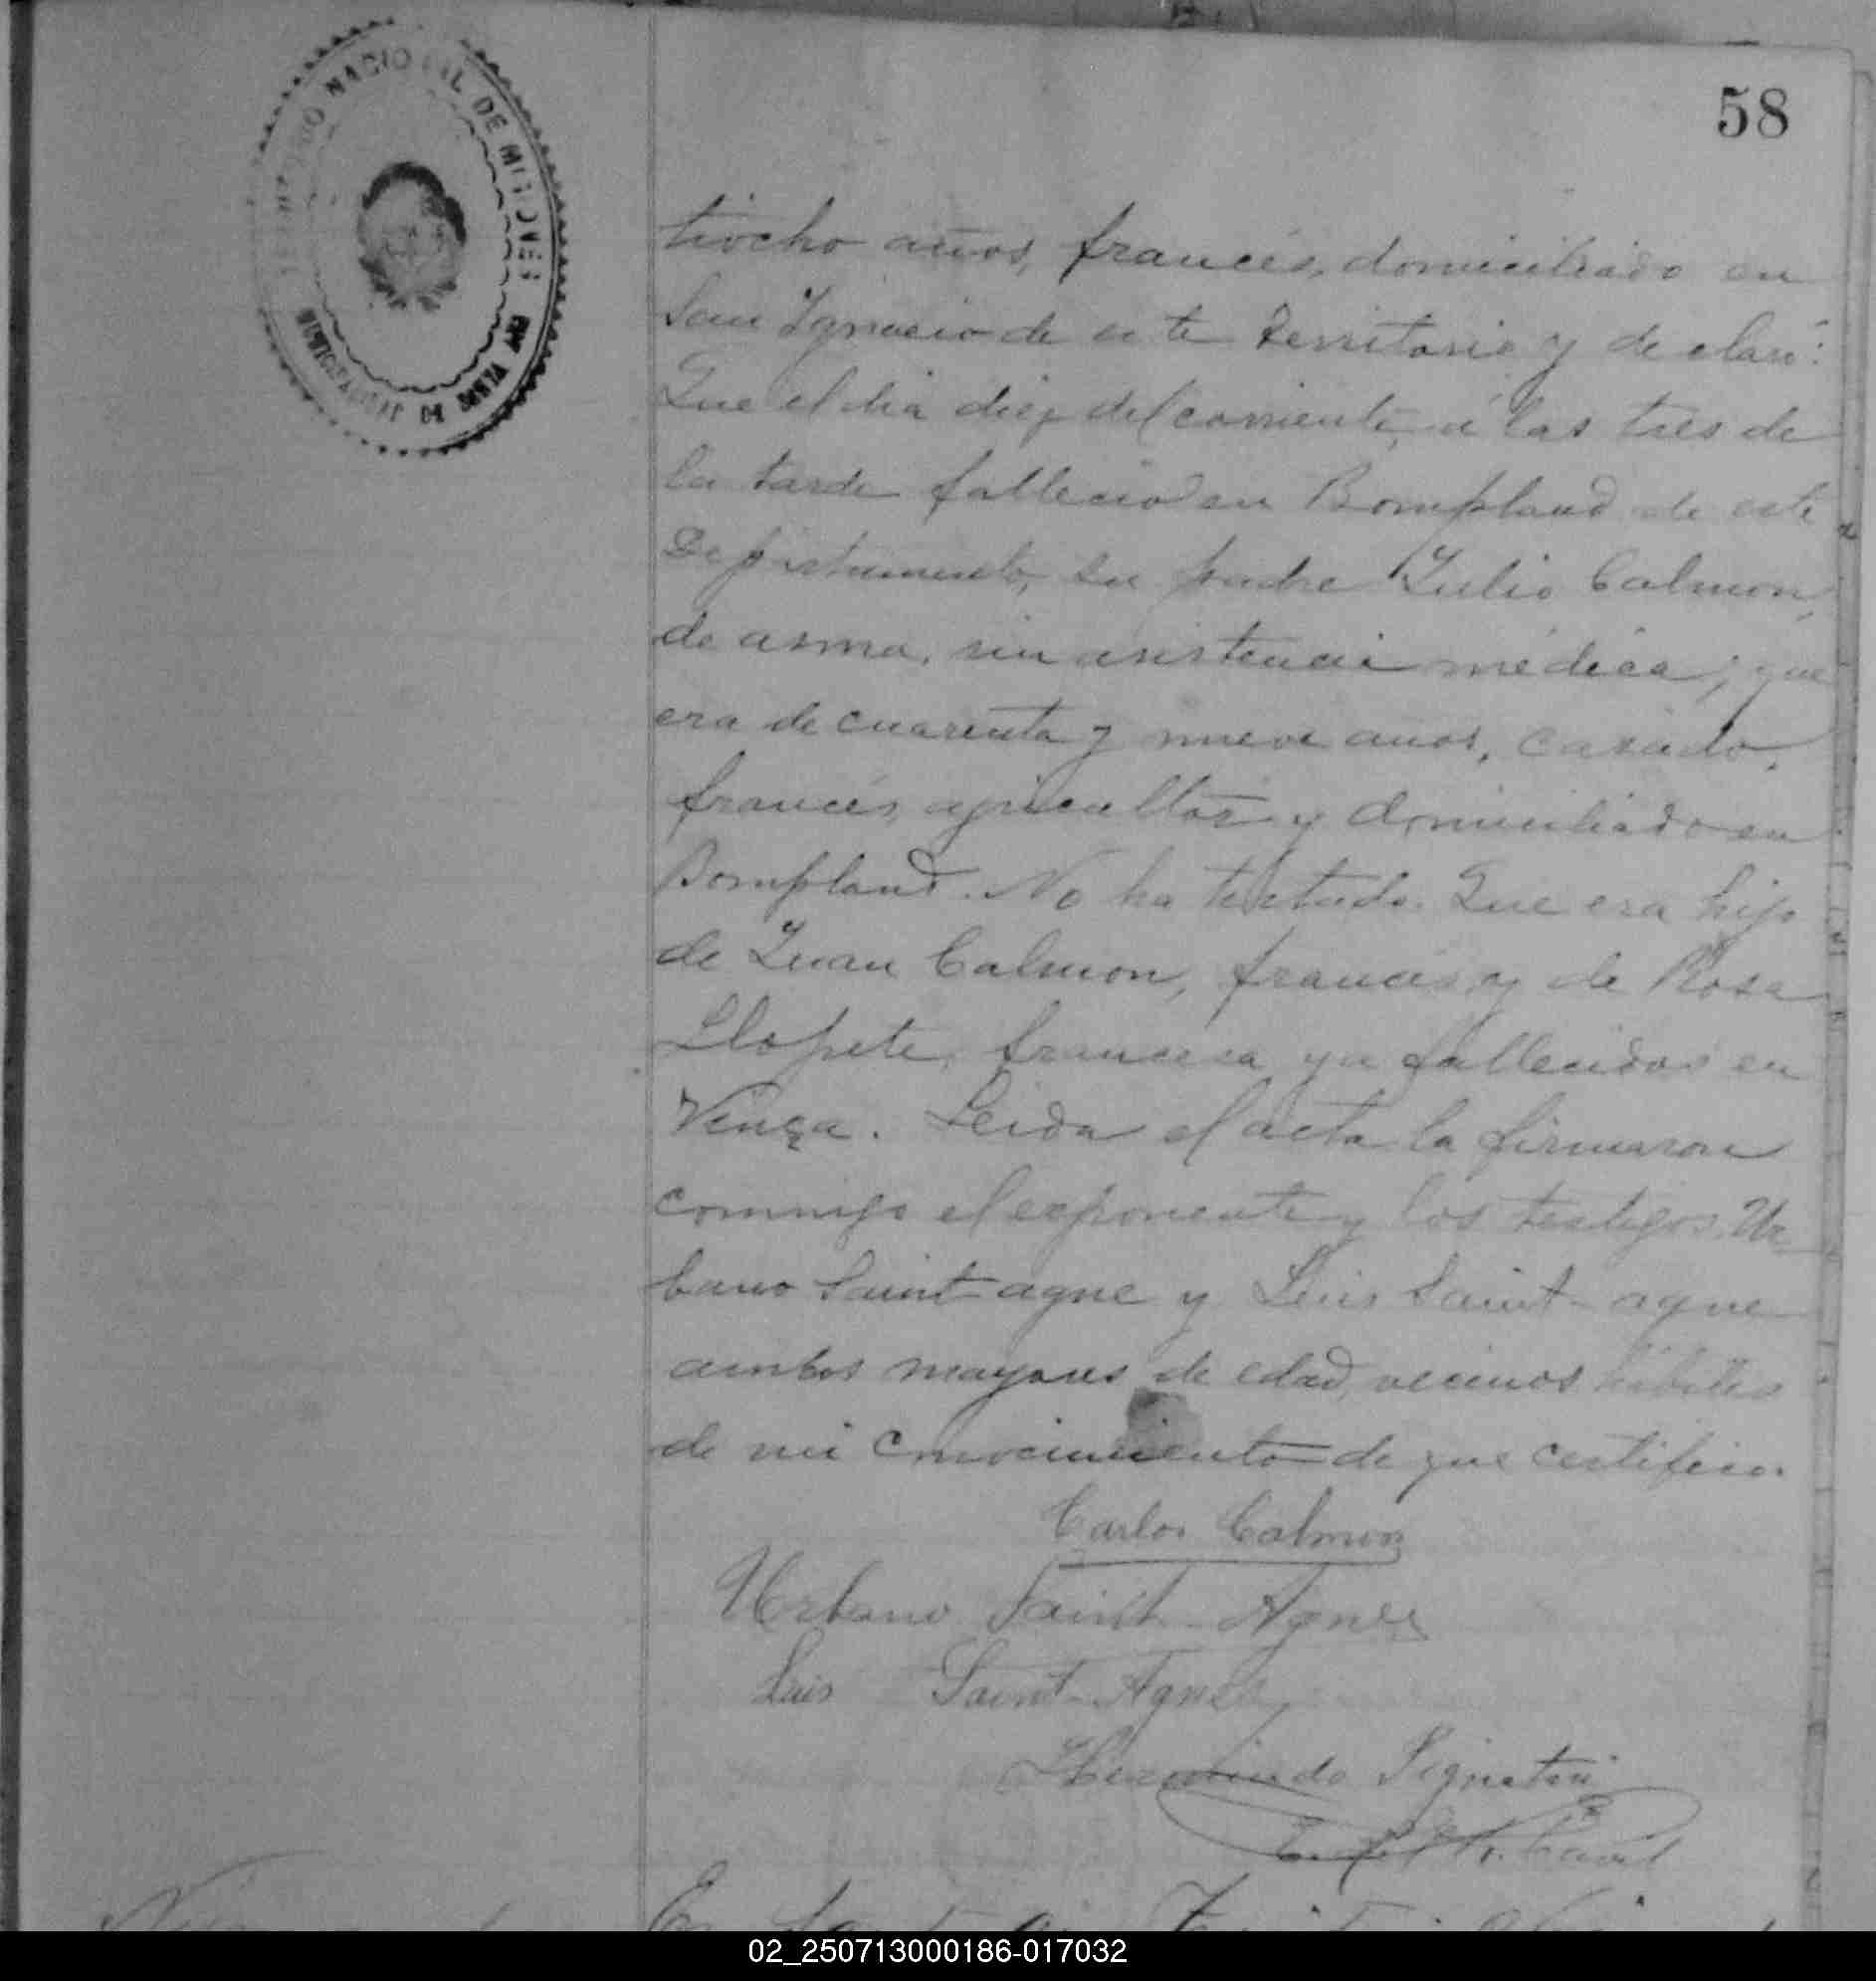 58
NACIO AL DE MISIONES
MUNICIPALIDAD DE SANTA ANA
tiocho años, francés, domiciliado en
San Ignacio de este Territorio y declaró:
Que el dia diez del corriente, á las tres de
la tarde falleció en Bompland de este
Departamento, su padre Julio Calmon,
de asma, sin asistencia médica; que
era de cuarenta y nueve años, casado,
francés, agricultor y domiciliado en
Bompland. No ha testado. Que era hijo
de Juan Calmon, francés y de Rosa
Llopete, francesa ya fallecidos en
Vença. Leida el acta la firmaron
conmigo el exponente y los testigos Ur
bano Saint-agne y Luis Saint-agne
ambos mayores de edad, vecinos hábiles
de mi conocimiento de que certifico.
Carlos Calmon
Urbano Saint-Agnes
Luis Saint-Agnes
Hermindo Pignatari
02_250713000186-017032